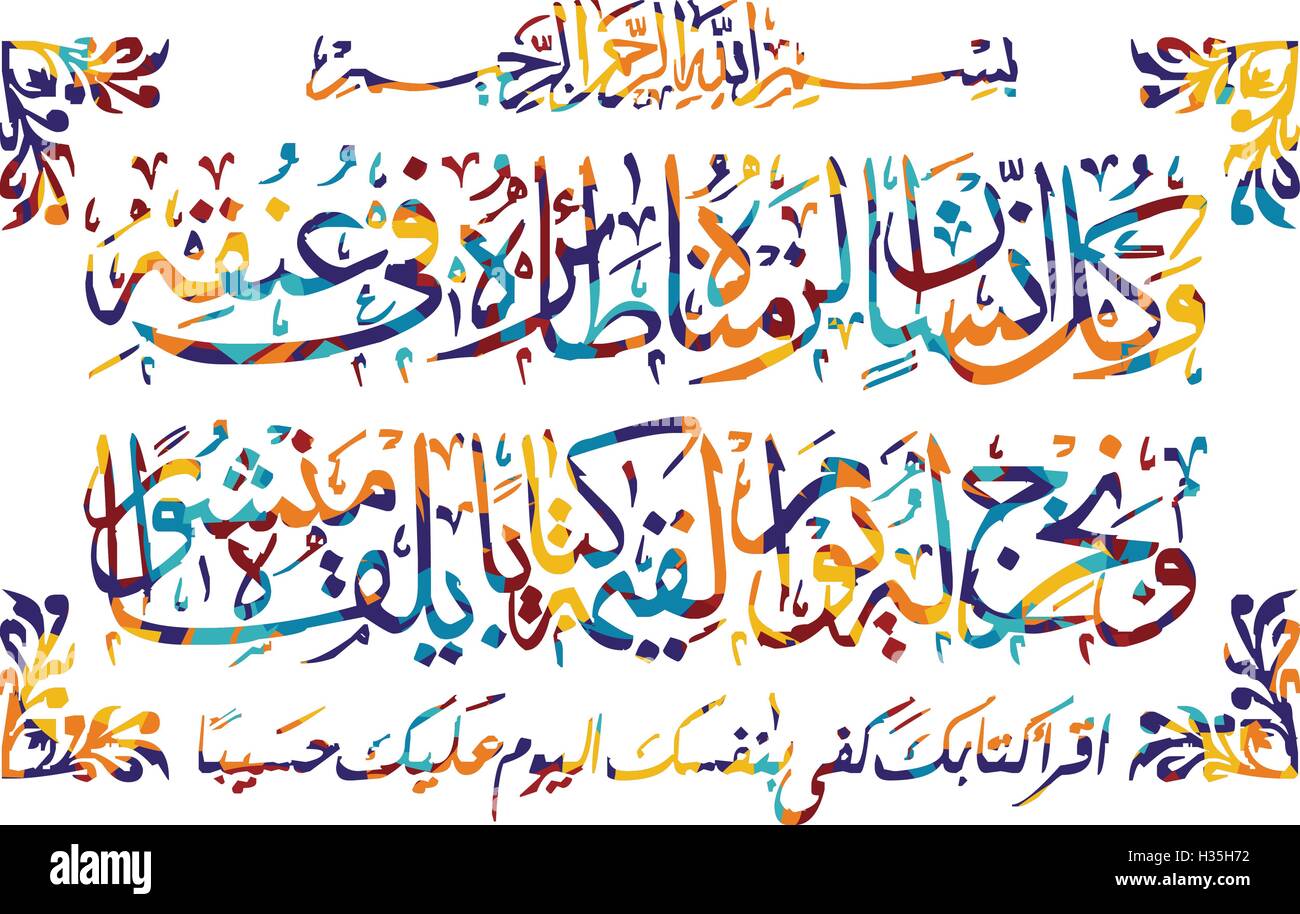 بسم الله الرحمن الرحيم
وَكُلَّ إِنْسَانٍ أَلْزَمْنَاهُ طَائِرَهُ فِي عُنُقِهِ
وَنُخْرِجُ لَهُ يَوْمَ الْقِيَامَةِ كِتَابًا يَلْقَاهُ مَنْشُورًا
اقرأ كتابك كفى بنفسك اليوم عليك حسيبًا
alamy
a
alamy
Image ID: H35H72
www.alamy.com